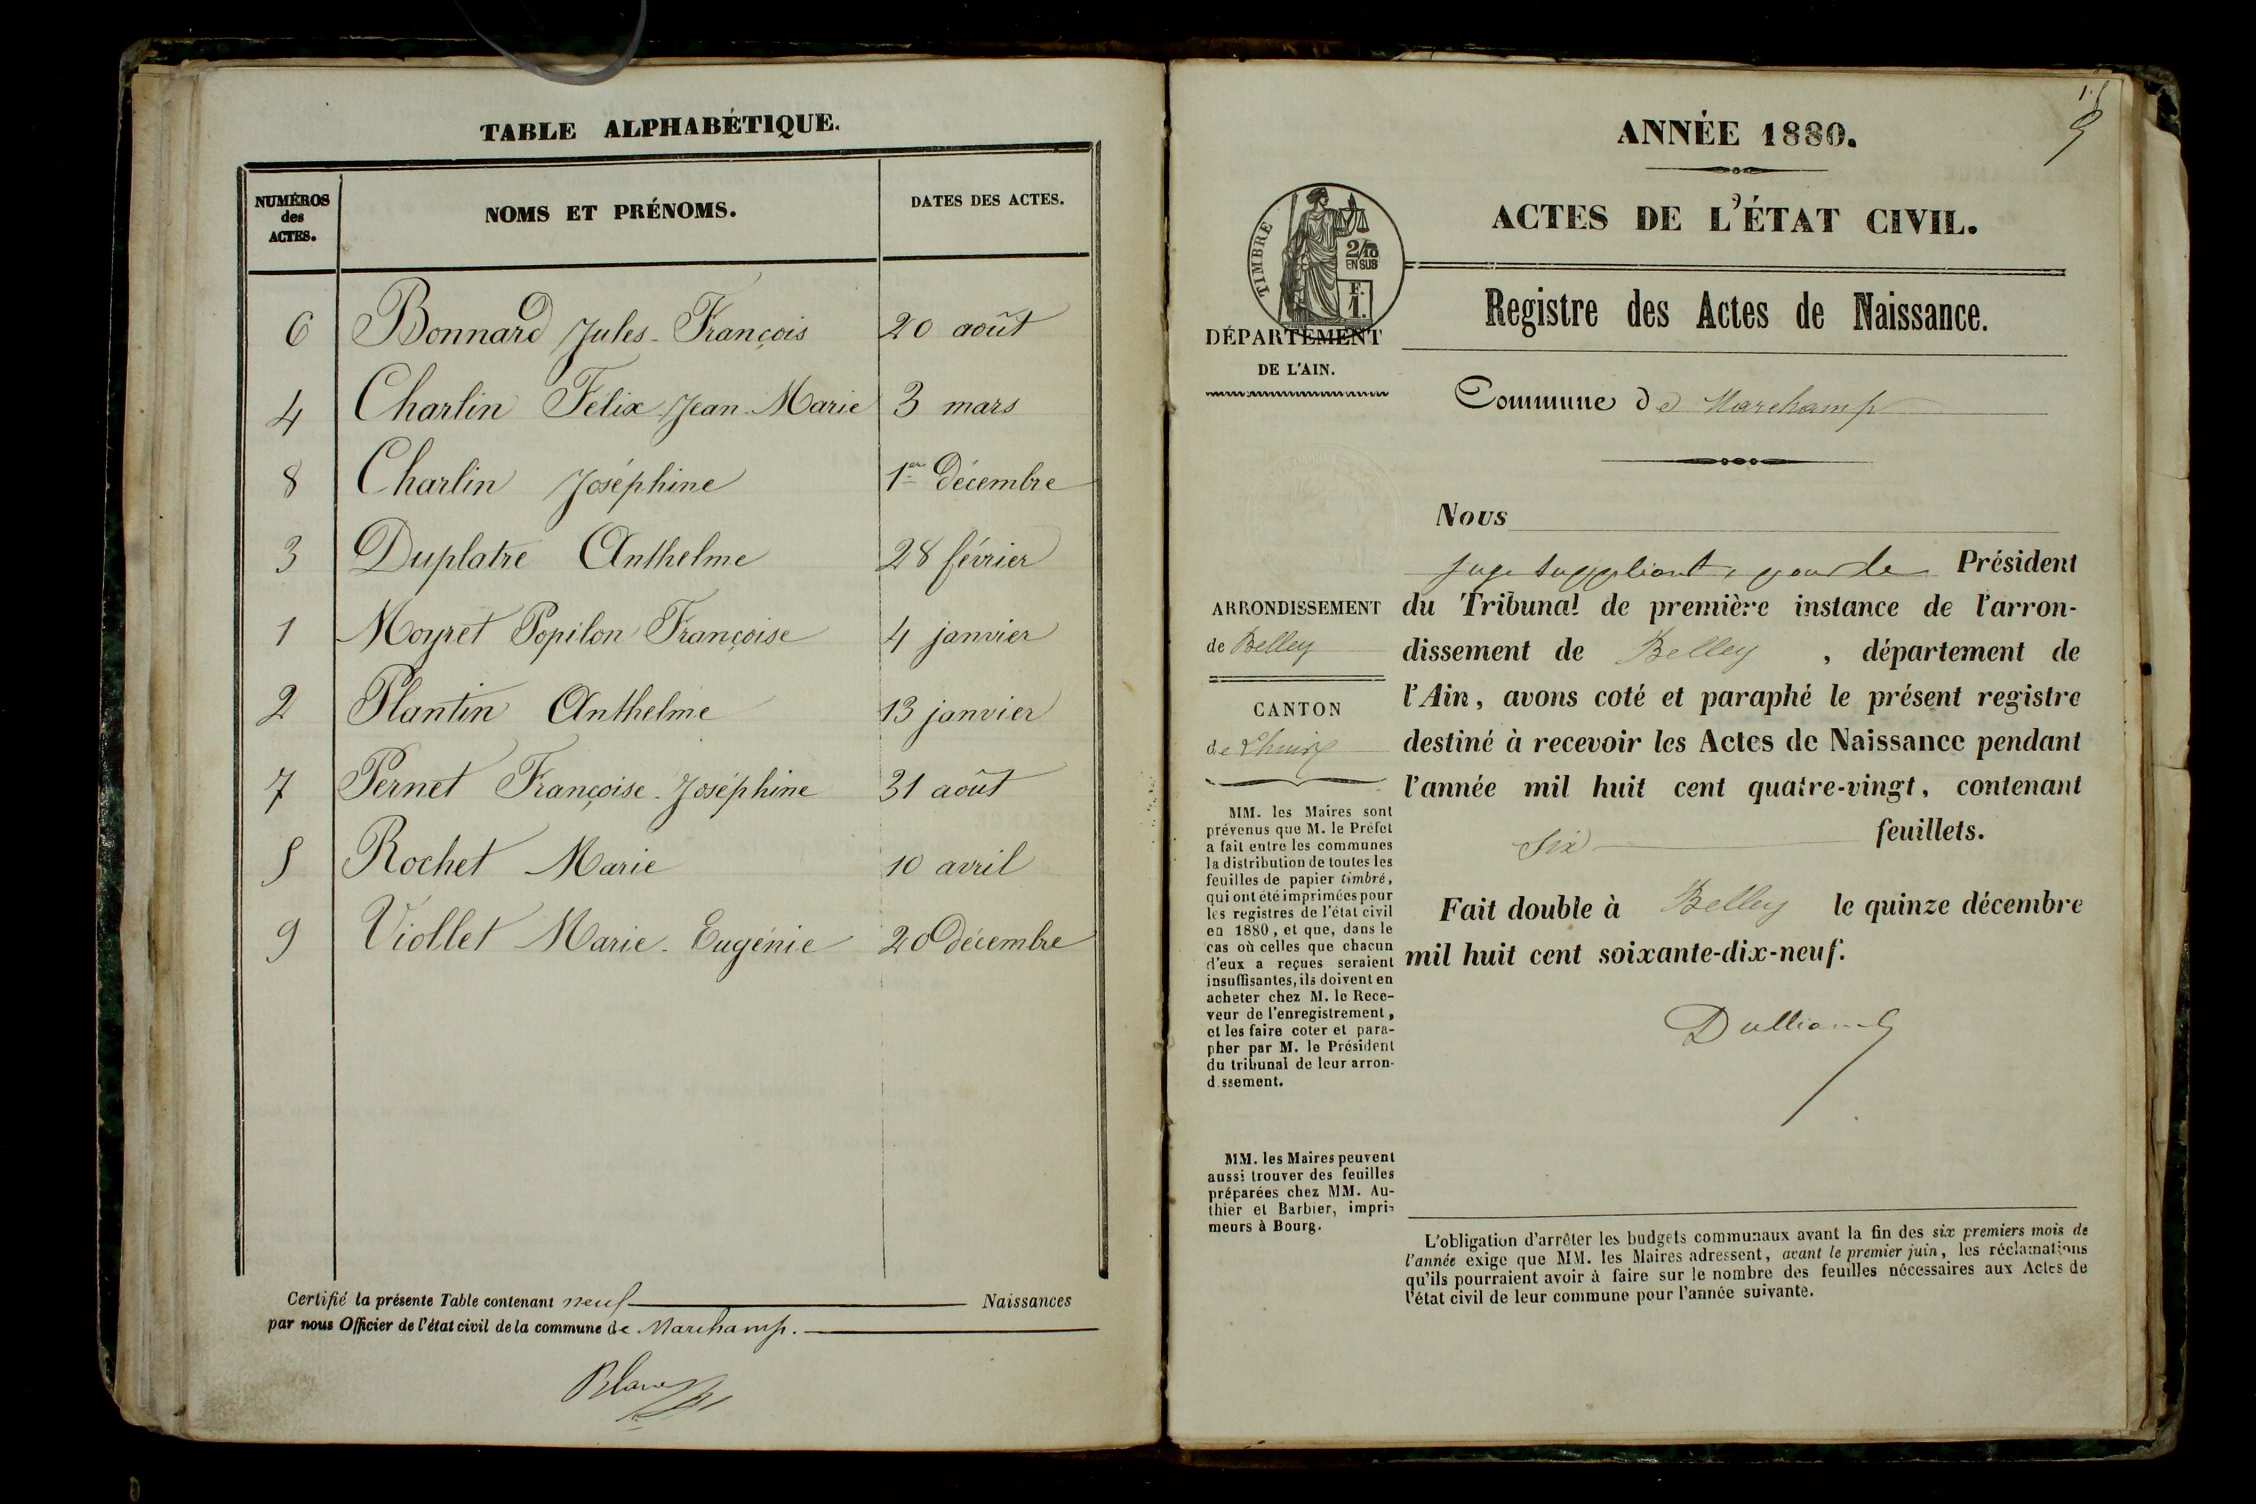 TABLE ALPHABÉTIQUE.
NUMÉROS des ACTES.
NOMS ET PRÉNOMS.
DATES DES ACTES.
6 Bonnard Jules-François 20 août
4 Charlin Felix-Jean-Marie 3 mars
8 Charlin Joséphine 1er Décembre
3 Duplatre Anthelme 28 février
1 Moyret Popilon Françoise 4 janvier
2 Plantin Anthelme 13 janvier
7 Pernet Françoise-Joséphine 31 août
5 Rochet Marie 10 avril
9 Viollet Marie-Eugénie 20 Décembre
Certifié la présente Table contenant neuf Naissances
par nous Officier de l'état civil de la commune de Marchamp.
Blanc
1.
ANNÉE 1880.
ACTES DE L'ÉTAT CIVIL.
TIMBRE
2/10
EN SUS
F.
1.
DÉPARTEMENT
DE L'AIN.
Registre des Actes de Naissance.
Commune de Marchamp
Nous
juge suppléant, pour le Président
du Tribunal de première instance de l'arron-
dissement de Belley, département de
l'Ain, avons coté et paraphé le présent registre
destiné à recevoir les Actes de Naissance pendant
l'année mil huit cent quatre-vingt, contenant
six feuillets.
Fait double à Belley le quinze décembre
mil huit cent soixante-dix-neuf.
ARRONDISSEMENT
de Belley
CANTON
de Lhuis
MM. les Maires sont
prévenus que M. le Préfet
a fait entre les communes
la distribution de toutes les
feuilles de papier timbré,
qui ont été imprimées pour
les registres de l'état civil
en 1880, et que, dans le
cas où celles que chacun
d'eux a reçues seraient
insuffisantes, ils doivent en
acheter chez M. le Rece-
veur de l'enregistrement,
et les faire coter et para-
pher par M. le Président
du tribunal de leur arron-
d.ssement.
MM. les Maires peuvent
aussi trouver des feuilles
préparées chez MM. Au-
thier et Barbier, impri-
meurs à Bourg.
L'obligation d'arrêter les budgets communaux avant la fin des six premiers mois de
l'année exige que MM. les Maires adressent, avant le premier juin, les réclamations
qu'ils pourraient avoir à faire sur le nombre des feuilles nécessaires aux Actes de
l'état civil de leur commune pour l'année suivante.